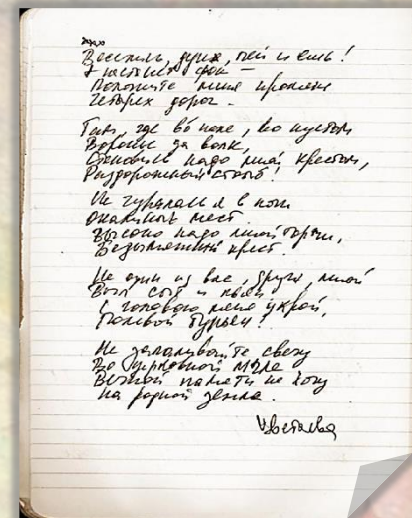 ***
Веселись, душа, пей и ешь!
А настанет срок —
Положите меня промеж
Четырех дорог.

Там, где во поле, во пустом
Воронье да волк,
Становись надо мной крестом,
Раздорожный столб!

Не чуралася я в ночи
Окаянных мест.
Высоко надо мной торчи,
Безымянный крест.

Не один из вас, други, мной
Был сыт и пьян.
С головою меня укрой,
Полевой бурьян!

Не запаливайте свечу
Во церковной мгле.
Вечной памяти не хочу
На родной земле.

Цветаева